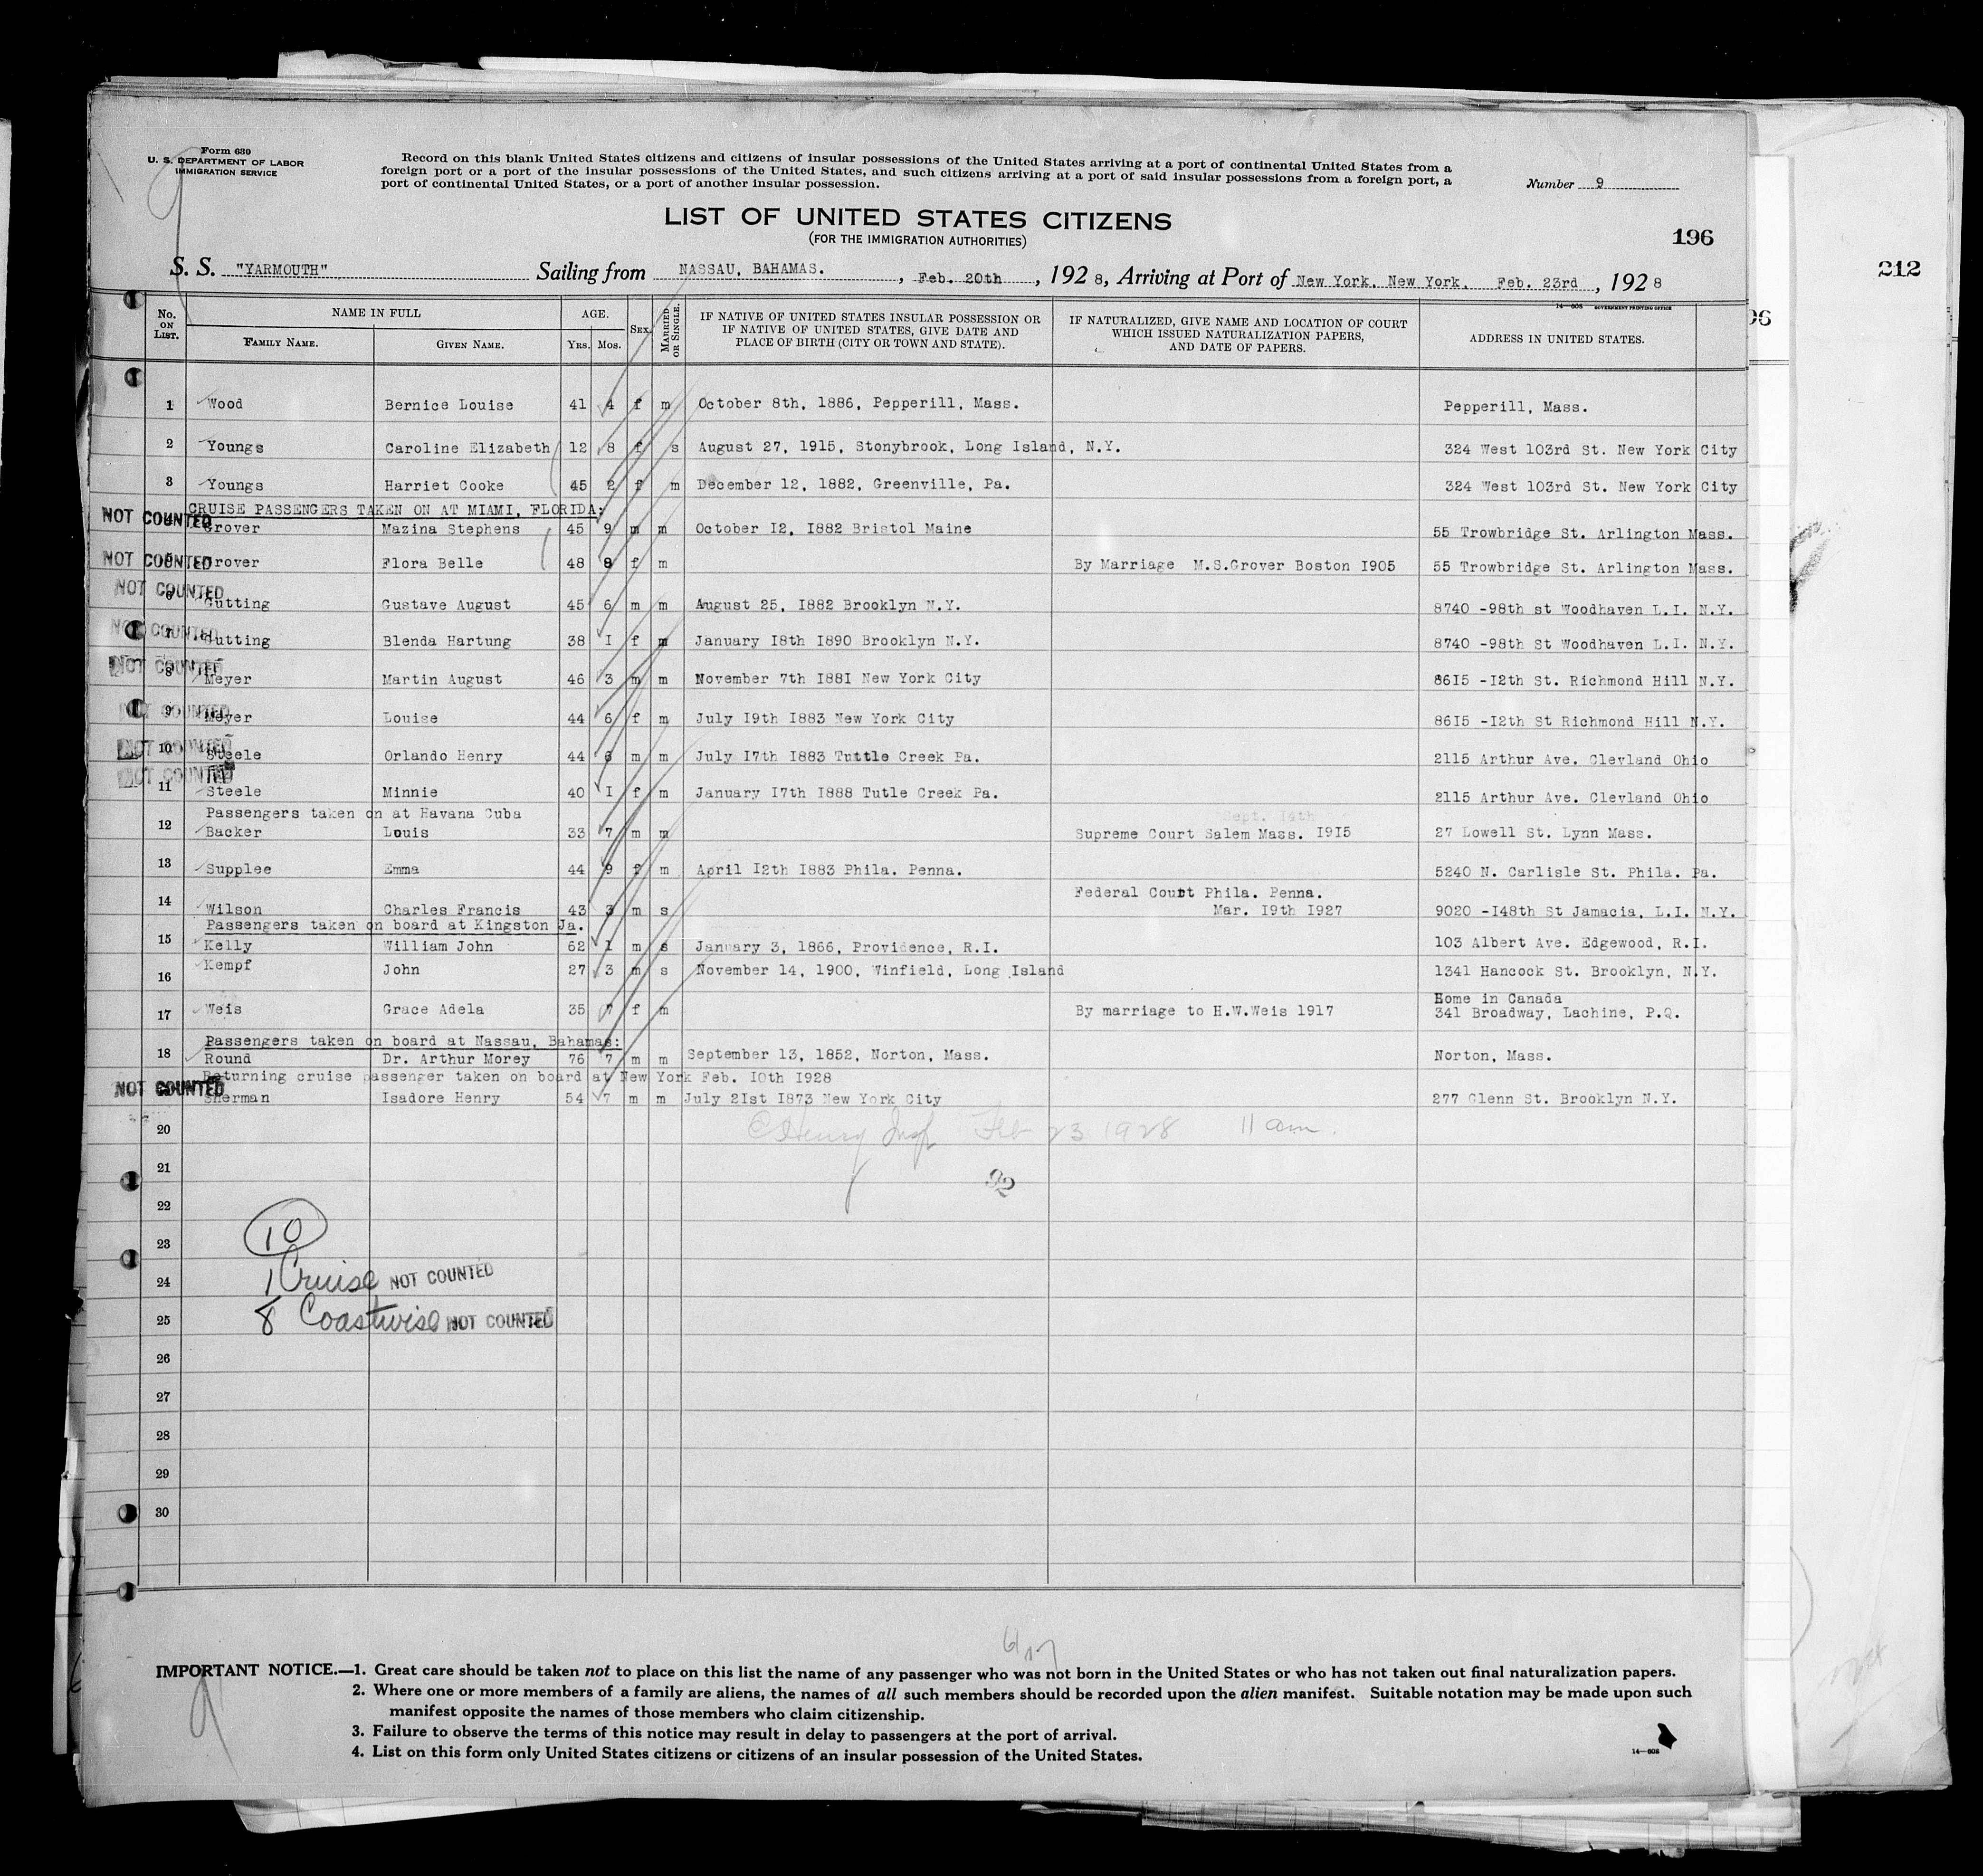 Form 630
U. S. DEPARTMENT OF LABOR
IMMIGRATION SERVICE
Record on this blank United States citizens and citizens of insular possessions of the United States arriving at a port of continental United States from a
foreign port or a port of the insular possessions of the United States, and such citizens arriving at a port of said insular possessions from a foreign port, a
port of continental United States, or a port of another insular possession.
Number 9
LIST OF UNITED STATES CITIZENS
(FOR THE IMMIGRATION AUTHORITIES)
196
212
S. S. "YARMOUTH" Sailing from NASSAU, BAHAMAS. , Feb. 20th , 192 8, Arriving at Port of New York, New York, Feb. 23rd , 192 8
14—608 GOVERNMENT PRINTING OFFICE
96
No. ON LIST. NAME IN FULL FAMILY NAME. GIVEN NAME. AGE. YRS. MOS. SEX. MARRIED OR SINGLE. IF NATIVE OF UNITED STATES INSULAR POSSESSION OR IF NATIVE OF UNITED STATES, GIVE DATE AND PLACE OF BIRTH (CITY OR TOWN AND STATE). IF NATURALIZED, GIVE NAME AND LOCATION OF COURT WHICH ISSUED NATURALIZATION PAPERS, AND DATE OF PAPERS. ADDRESS IN UNITED STATES.
1 Wood Bernice Louise 41 4 f m October 8th, 1886, Pepperill, Mass. Pepperill, Mass.
2 Youngs Caroline Elizabeth 12 8 f s August 27, 1915, Stonybrook, Long Island, N.Y. 324 West 103rd St. New York City
3 Youngs Harriet Cooke 45 2 f m December 12, 1882, Greenville, Pa. 324 West 103rd St. New York City
CRUISE PASSENGERS TAKEN ON AT MIAMI, FLORIDA:
NOT COUNTED Grover Mazina Stephens 45 9 m m October I2, I882 Bristol Maine 55 Trowbridge St. Arlington Mass.
NOT COUNTED Grover Flora Belle 48 8 f m By Marriage M.S.Grover Boston I905 55 Trowbridge St. Arlington Mass.
NOT COUNTED 6 Gutting Gustave August 45 6 m m August 25, I882 Brooklyn N.Y. 8740 -98th st Woodhaven L.I. N.Y.
NOT COUNTED 7 Gutting Blenda Hartung 38 I f m January I8th I890 Brooklyn N.Y. 8740 -98th St Woodhaven L.I. N.Y.
NOT COUNTED 8 Meyer Martin August 46 3 m m November 7th I88I New York City 86I5 -I2th St. Richmond Hill N.Y.
NOT COUNTED 9 Meyer Louise 44 6 f m July I9th I883 New York City 86I5 -I2th St Richmond Hill N.Y.
NOT COUNTED 10 Steele Orlando Henry 44 6 m m July I7th I883 Tuttle Creek Pa. 2115 Arthur Ave. Clevland Ohio
NOT COUNTED 11 Steele Minnie 40 I f m January I7th I888 Tutle Creek Pa. 2115 Arthur Ave. Clevland Ohio
Passengers taken on at Havana Cuba
Sept. 14th
12 Backer Louis 33 7 m m Supreme Court Salem Mass. I9I5 27 Lowell St. Lynn Mass.
13 Supplee Emma 44 9 f m April I2th I883 Phila. Penna. 5240 N. Carlisle St. Phila. Pa.
Federal Court Phila. Penna.
14 Wilson Charles Francis 43 3 m s Mar. I9th I927 9020 -I48th St Jamacia, L.I. N.Y.
Passengers taken on board at Kingston Ja.
15 Kelly William John 62 1 m s January 3, 1866, Providence, R.I. 103 Albert Ave. Edgewood, R.I.
16 Kempf John 27 3 m s November 14, 1900, Winfield, Long Island 1341 Hancock St. Brooklyn, N.Y.
Home in Canada
17 Weis Grace Adela 35 7 f m By marriage to H.W.Weis 1917 341 Broadway, Lachine, P.Q.
Passengers taken on board at Nassau, Bahamas:
18 Round Dr. Arthur Morey 76 7 m m September 13, 1852, Norton, Mass. Norton, Mass.
Returning cruise passenger taken on board at New York Feb. I0th I928
NOT COUNTED Sherman Isadore Henry 54 7 m m July 2Ist I873 New York City 277 Glenn St. Brooklyn N.Y.
20 Henry Insp Feb 23 1928 11 am.
21
22
23
24
25
26
27
28
29
30
92
10
1 Cruise NOT COUNTED
8 Coastwise NOT COUNTED
IMPORTANT NOTICE.—1. Great care should be taken not to place on this list the name of any passenger who was not born in the United States or who has not taken out final naturalization papers.
2. Where one or more members of a family are aliens, the names of all such members should be recorded upon the alien manifest. Suitable notation may be made upon such
manifest opposite the names of those members who claim citizenship.
3. Failure to observe the terms of this notice may result in delay to passengers at the port of arrival.
4. List on this form only United States citizens or citizens of an insular possession of the United States.
14—608